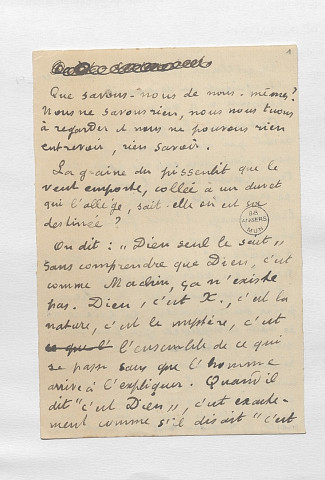 1
Que savons-nous de nous-mêmes?
Nous ne savons rien, nous nous tuons
à regarder et nous ne pouvons rien
entrevoir, rien savoir.
La graine du pissenlit que le
vent emporte, collée à un duvet
qui l'allège, sait-elle où est sa
destinée?
BIB
ANGERS
MUN
On dit: „Dieu seul le sait„
sans comprendre que Dieu, c'est
comme Madrin, ça n'existe
pas. Dieu, c'est X., c'est la
nature, c'est le mystère, c'est
l'ensemble de ce qui
se passe sans que l'homme
arrive à l'expliquer. Quand il
dit "c'est Dieu„, c'est exacte-
ment comme s'il disait "c'est